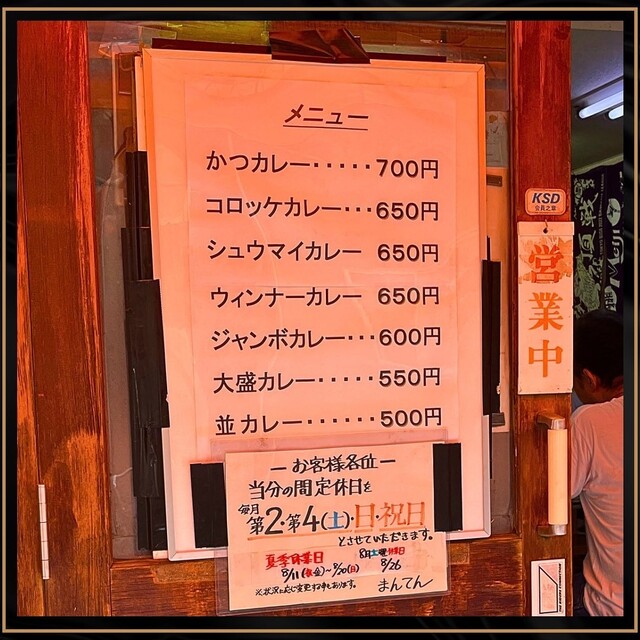 メニュー
かつカレー・・・・・700円
コロッケカレー・・・650円
シュウマイカレー 650円
ウィンナーカレー 650円
ジャンボカレー・・・600円
大盛カレー・・・・・550円
並カレー・・・・・・500円
ーお客様各位ー
当分の間定休日を
毎月
第2・第4(土)・日・祝日
とさせていただきます。
夏季休業日
8月土曜休業日
8/26
※状況に応じ変更する事もあります。
まんてん
KSD
会員之章
営業中